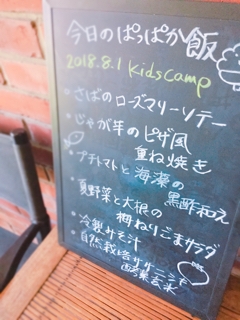 今日のぱっぱか飯
2018.8.1 kidscamp
・さばのローズマリーソテー
・じゃが芋のピザ風
重ね焼き
・プチトマトと海藻の
黒酢和え
・夏野菜と大根の
梅ねりごまサラダ
・冷製みそ汁
・自然栽培ササニシキ
酵素玄米